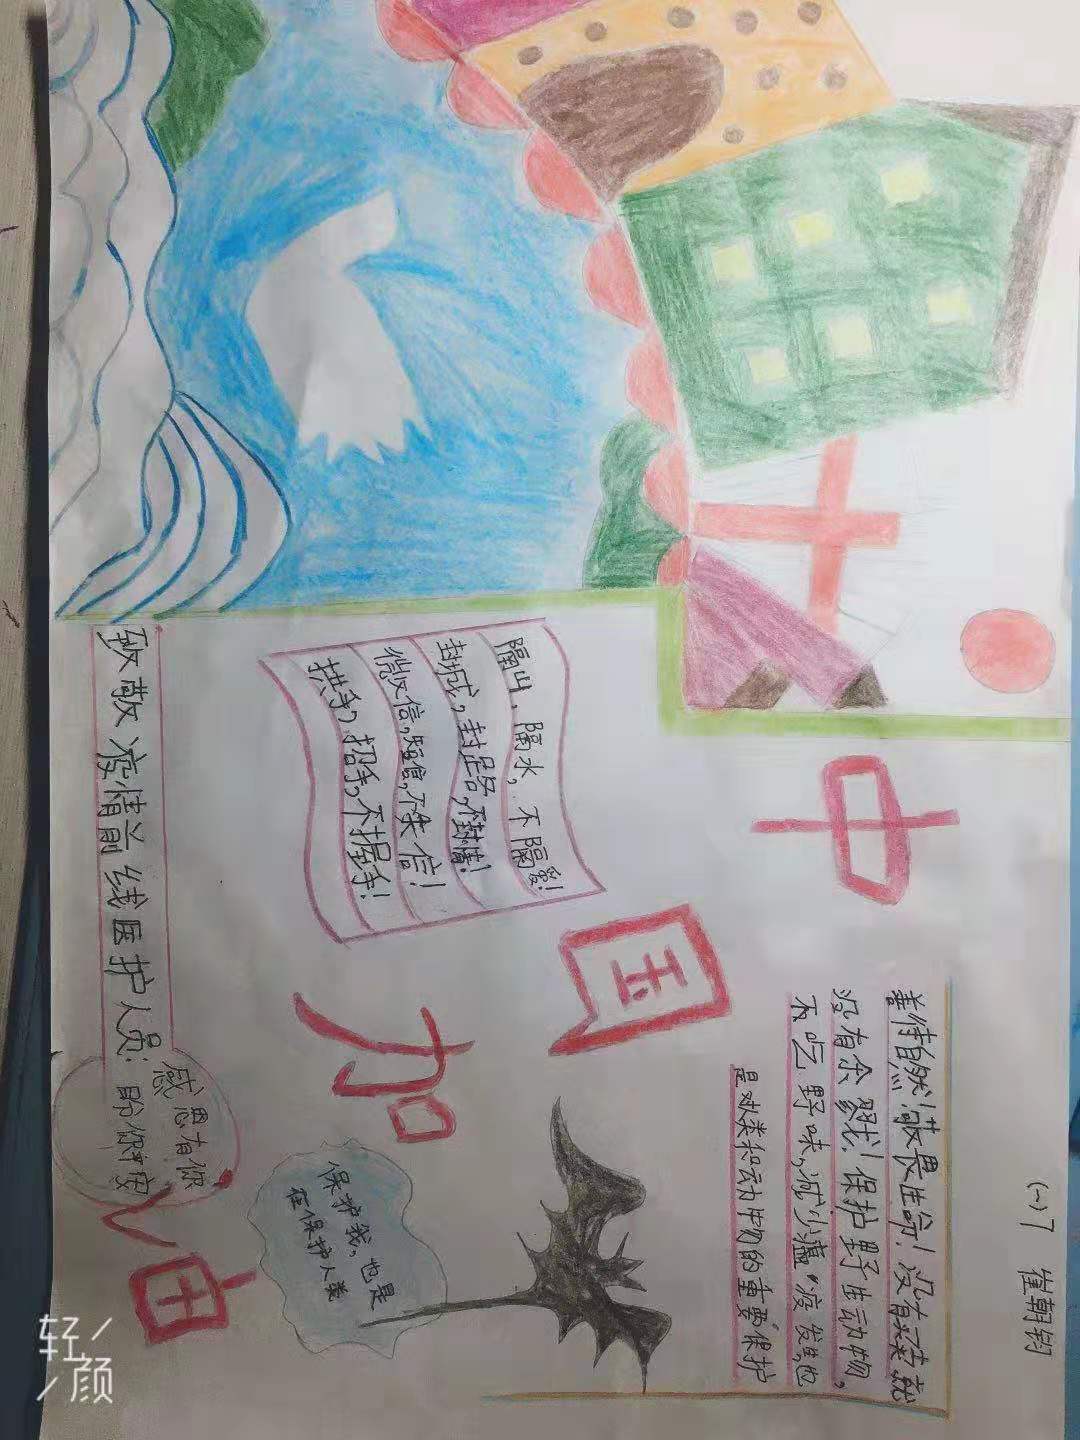 (一)7 崔朝钧
中国加油
善待自然!敬畏生命!没有就
没有杀戮!保护野生动物,
不吃野味,减少瘟疫发生,也
是对人类和动物的重要保护
隔山,隔水,不隔爱!
封城,封路,不封情!
微信,短信,不失信!
拱手,招手,不握手!
保护我,也是
在保护人类
致敬疫情前线医护人员:
感恩有你
盼你平安
轻颜